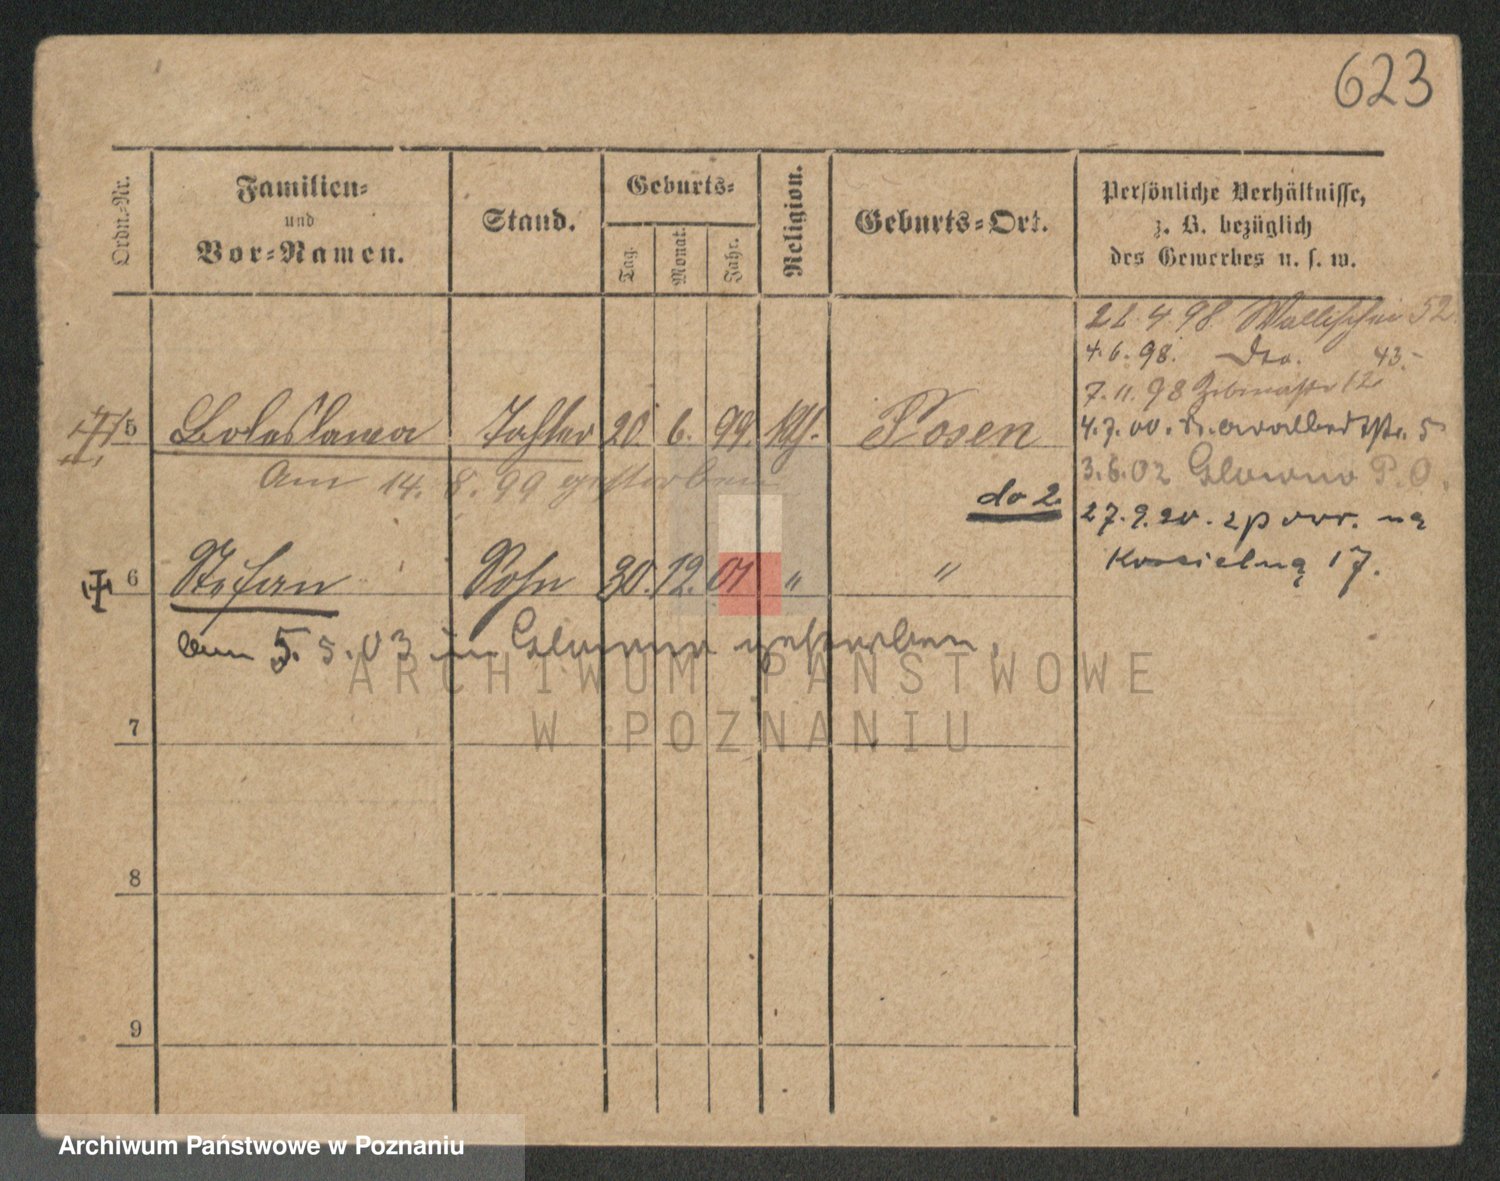 623
Ordn.-Nr.
Familien-
und
Vor-Namen.
Stand.
Geburts-
Tag.
Monat.
Jahr.
Religion.
Geburts-Ort.
Persönliche Verhältnisse,
z. B. bezüglich
des Gewerbes u. s. w.
21. 4. 98 Wallischei 52
4. 6. 98. dto. 43.
7. 11. 98
4. 7. 00. 5
3. 6. 02 Glowno P. O.
27. 9. 20. z powr. na
Kościelną 17.
5 Boleslawa Tochter 20. 6. 99. kth. Posen
Am 14. 8. 99 gestorben
do 2.
6 Stefan Sohn 30. 12. 01 " "
Am 5. 5. 03 in Glowno gestorben.
7
8
9
ARCHIWUM PAŃSTWOWE
W POZNANIU
Archiwum Państwowe w Poznaniu